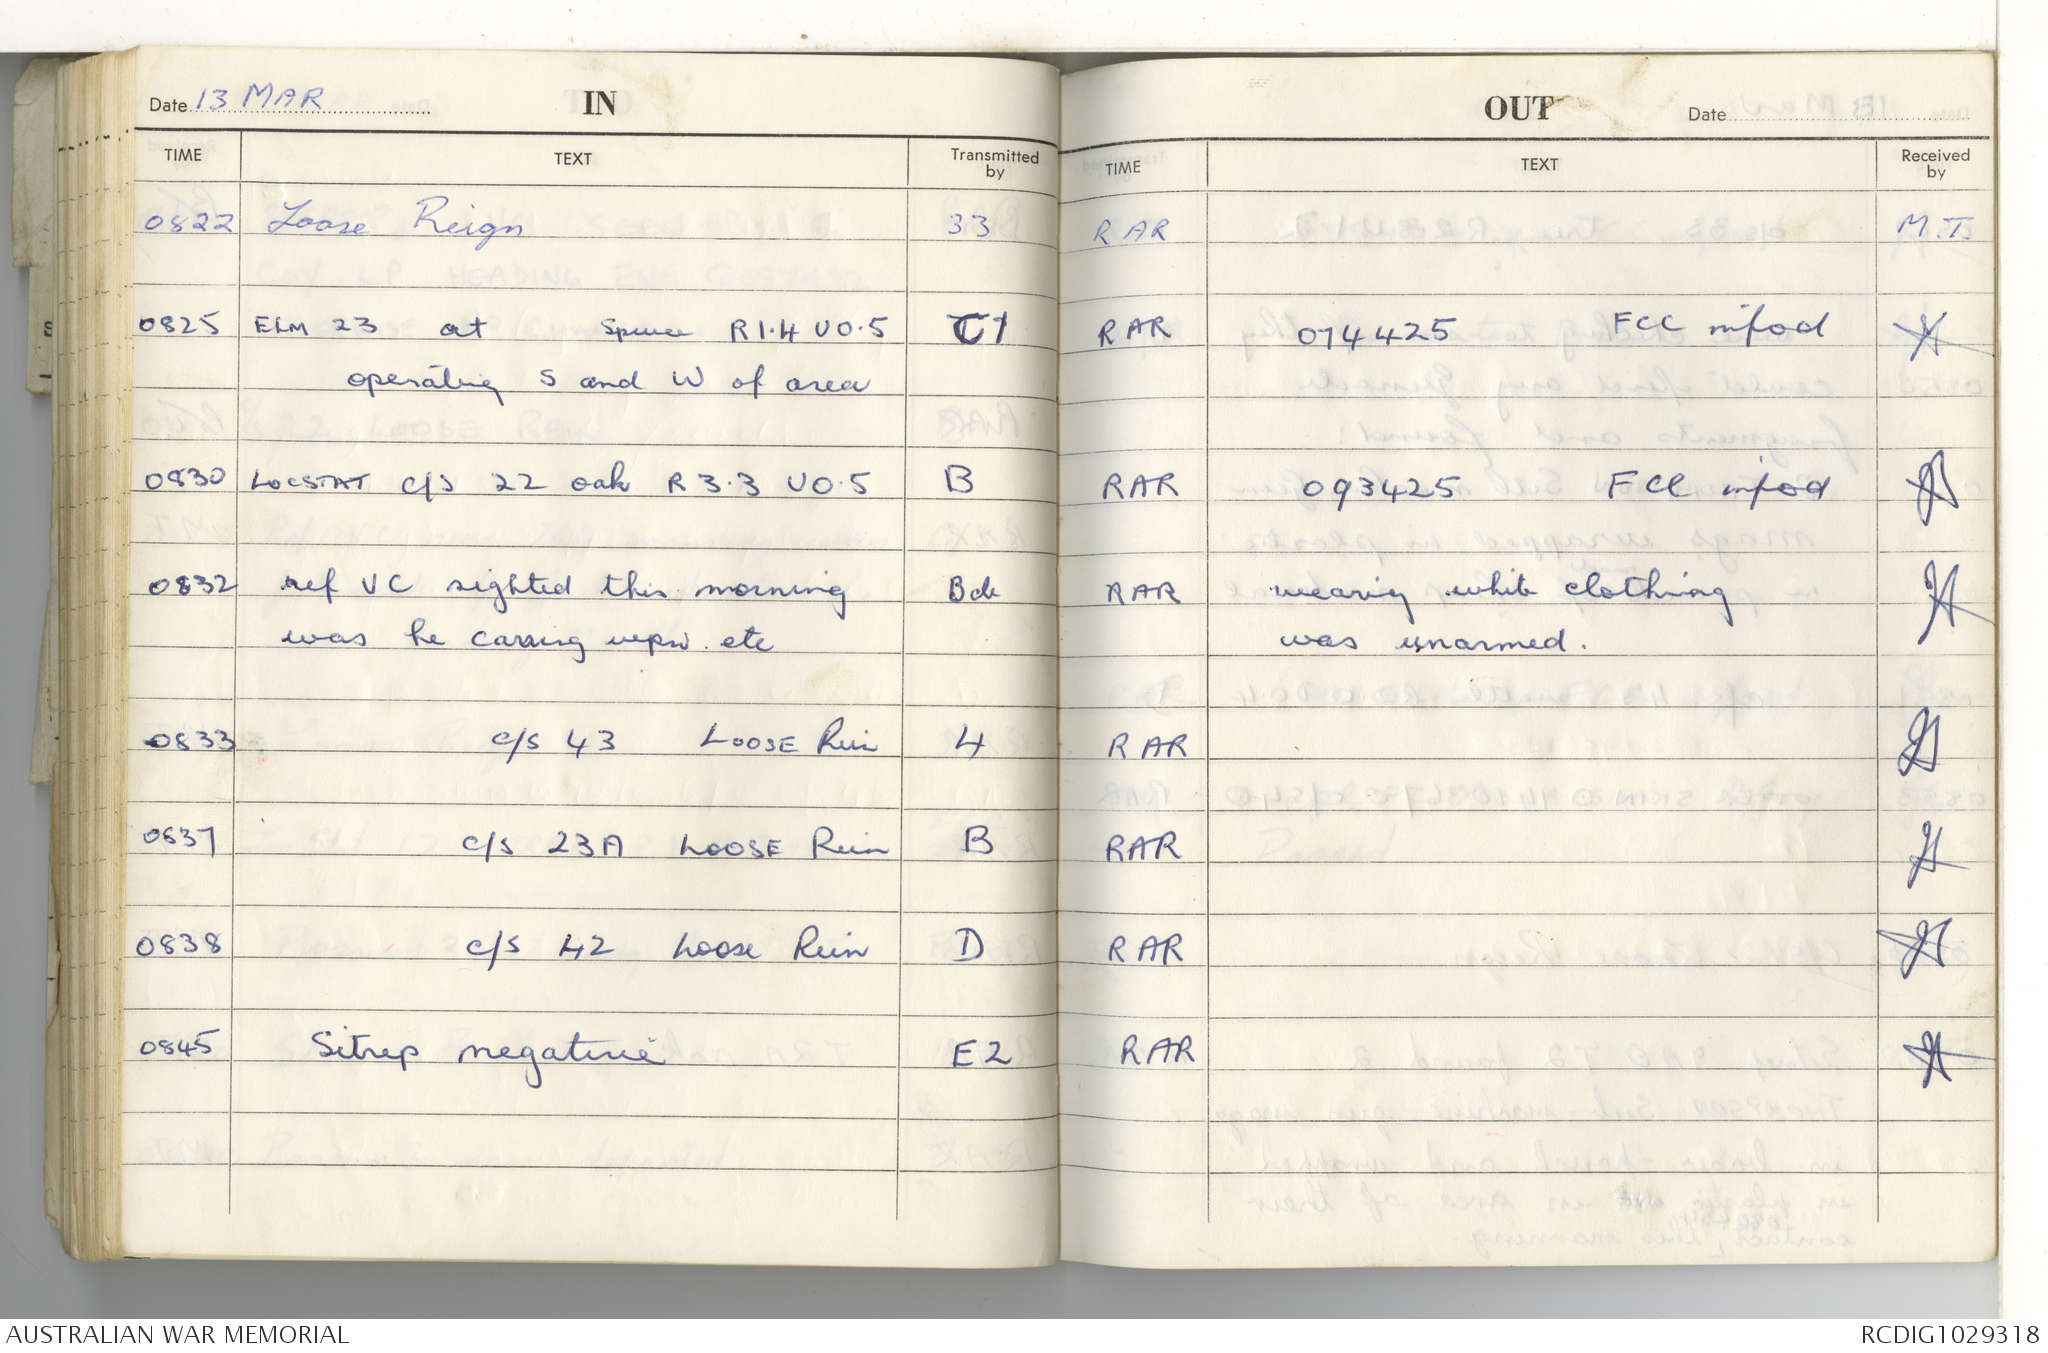 Date 13 MAR IN
TIME TEXT Transmitted by
0822 Loose Reign 33
0825 ELM 23 at Spruce R1.4 U0.5 T1
operating S and W of area
0830 LOCSTAT c/s 22 oak R3.3 U0.5 B
0832 ref VC sighted this morning
was he carring wpn etc
0833 c/s 43 LOOSE Rein 4
0837 c/s 23A LOOSE Rein B
0838 c/s 42 Loose Rein D
0845 Sitrep negative E2
OUT Date
TIME TEXT Received by
RAR M.T.
RAR 074425 FCC infod
RAR 093425 FCC infod
RAR wearing white clothing
was unarmed.
RAR
RAR
RAR
RAR
AUSTRALIAN WAR MEMORIAL RCDIG1029318